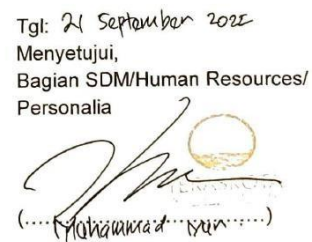 Tgl: 21 September 2022
Menyetujui,
Bagian SDM/Human Resources/
Personalia
TERASKOTA
(....Mohammad....)